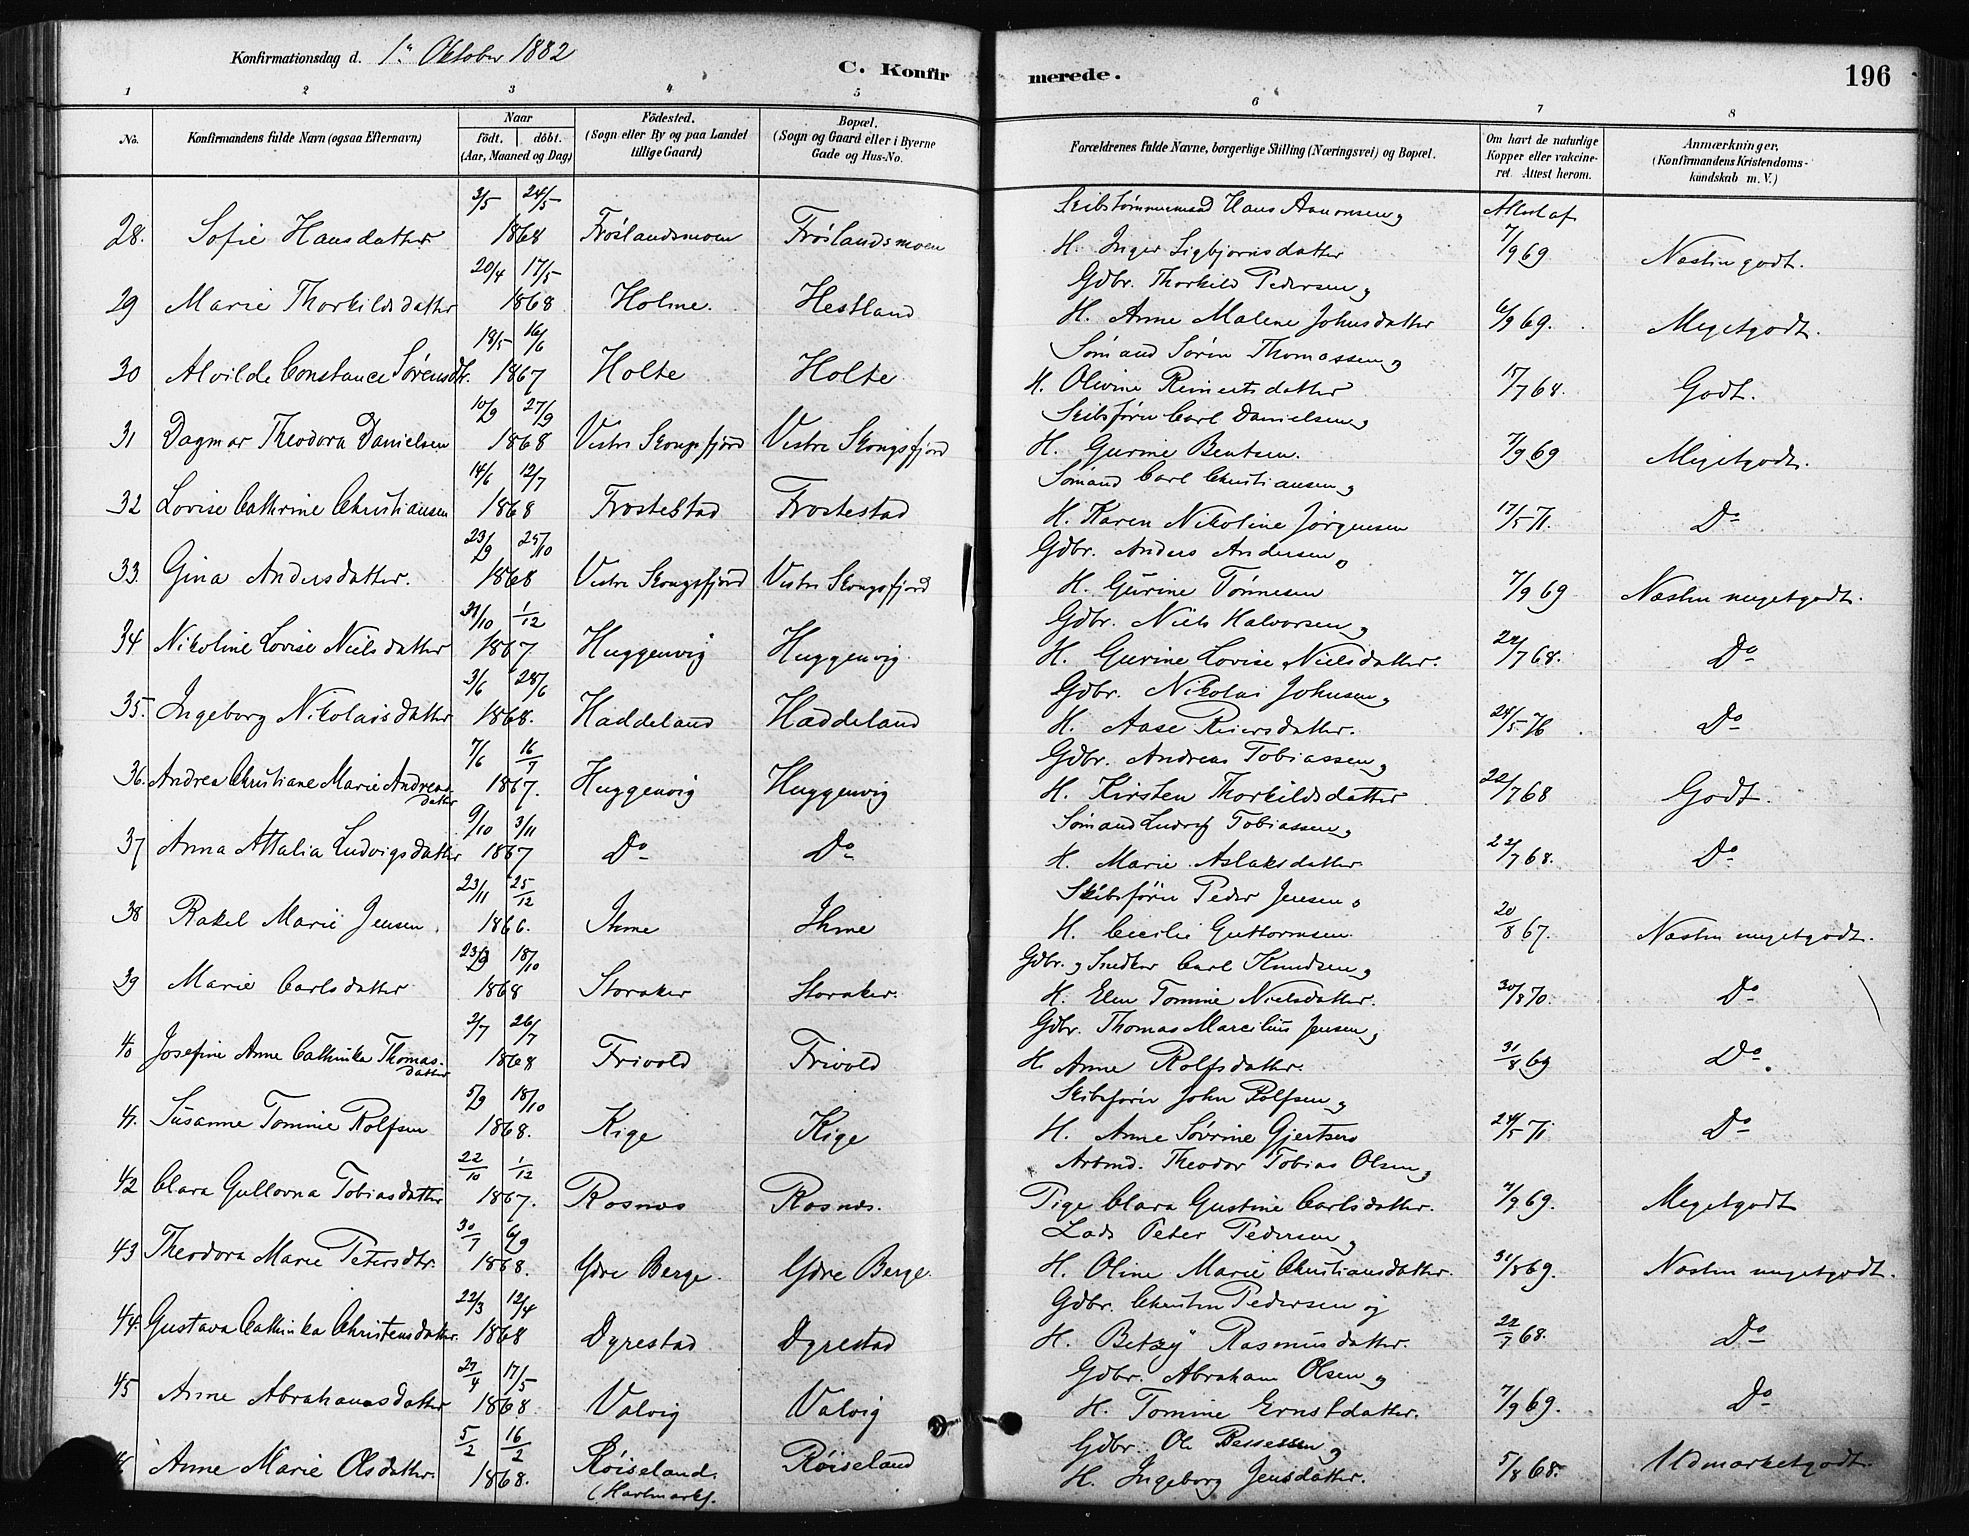 Konfirmationsdag d. 1ª Oktober 1882
C. Konfirmerede.
196
1 2 3 4 5 6 7 8
No.
Konfirmandens fulde Navn (ogsaa Efternavn)
Naar
födt. döbt.
(Aar, Maaned og Dag)
Födested.
(Sogn eller By og paa Landet
tillige Gaard)
Bopæl.
(Sogn og Gaard eller i Byerne
Gade og Hus-No.
Forældrenes fulde Navne, borgerlige Stilling (Næringsvei) og Bopæl.
Om havt de naturlige
Kopper eller vakcine-
ret. Attest herom.
Anmærkninger,
(Konfirmandens Kristendoms-
kundskab m. V.)
3/5 24/5 Skibstømmermand Hans Aanonsen og Attest af
28. Sofie Hansdatter 1868 Frøslandsmoen Frøslandsmoen H. Inger Sigbjørnsdatter 7/9 69 Næsten godt.
20/4 17/5 Gdbr. Thorkild Pedersen og
29 Marie Thorkildsdatter 1868 Holme. Hestland H. Anne Malene Johnsdatter 6/9 69. Megetgodt.
18/5 16/6 Sømand Sørin Thomassen og
30 Alvilde Constance Sørensdtr. 1867 Holte Holte H. Olivine Reinertsdatter 17/7 68. Godt.
10/9 27/9 Skibsförer Carl Danielsen og
31 Dagmar Theodora Danielsen 1868 Vestre Skongsfjord Vestre Skongsfjord H. Gurine Bentsen. 7/9 69 Megetgodt.
14/6 12/7 Sømand Carl Christiansen og
32 Lovise Cathrine Christiansen 1868 Frostestad Frostestad H. Karen Nikoline Jørgensen 17/5 71. Do
23/9 25/10 Gdbr. Anders Andersen og
33. Gina Andersdatter. 1868 Vestre Skongsfjord Vestre Skongsfjord H. Gurine Tønnesen 7/9 69 Næsten megetgodt.
31/10 1/12 Gdbr. Niels Halvorsen og
34 Nikoline Lovise Nielsdatter 1867 Huggenvig Huggenvig H. Gurine Lovise Nielsdatter. 22/7 68. Do
3/6 28/6 Gdbr. Nikolai Johnsen og
35. Ingeborg Nikolaisdatter 1868. Haddeland Haddeland H. Aase Reiersdatter. 24/5 76 Do
7/6 16/7 Gdbr. Andreas Tobiassen og
36. Andrea Christiane Marie Andreas-
datter 1867. Huggenvig Huggenvig H. Kirsten Thorkildsdatter 22/7 68 Godt.
9/10 3/11 Sømand Ludvig Tobiassen og
37 Anna Attalia Ludvigsdatter 1867 Do Do H. Marie Aslaksdatter 22/7 68. Do
23/11 25/12 Skibsförer Peder Jensen og
38 Rakel Marie Jensen. 1866. Ihme Ihme H. Cecilie Guttormsen. 20/8 67. Næsten megetgodt.
23/9 18/10 Gdbr. og Snedker Carl Knudsen og
39 Marie Carlsdatter 1868 Storaker Storaker. H. Elen Tomine Nielsdatter. 30/8 70. Do
2/7 26/7 Gdbr. Thomas Marcilius Jensen og
40 Josefine Anne Cathinka Thomas-
datter 1868 Frivold Frivold H. Anne Rolfsdatter. 31/8 69 Do.
5/9 18/10 Skibsförer John Rolfsen og
41. Susanne Tomine Rolfsen 1868. Kige Kige H. Anne Sövrine Gjertsen 24/5 71 Do
22/10 1/12 Arbmd. Theodor Tobias Olsen og
42 Clara Gullovna Tobiasdatter 1867. Rosnæs Rosnæs. Pige Clara Gustine Carlsdatter. 7/9 69. Megetgodt
30/7 6/9 Lods Peter Pedersen og
43 Theodora Marie Petersdtr. 1868. Ydre Berge. Ydre Berge. H. Oline Marie Christiansdatter. 31/8 69. Næsten megetgodt.
22/3 12/4 Gdbr. Christen Pedersen og
44. Gustava Cathinka Christensdatter. 1868 Dyrestad Dyrestad H. Betzy Rasmusdatter. 22/7 68. Do
27/4 17/5 Gdbr. Abraham Olsen og
45 Anne Abrahamsdatter 1868. Valvig Valvig H. Tomine Ernstdatter. 7/9 69. Do
5/2 16/2 Gdbr. Ole Bessesen og
Anne Marie Olsdatter. 1868. Røiseland. Røiseland H. Ingeborg Jensdatter. 5/8 68. Udmærketgodt.
(Hartmark).